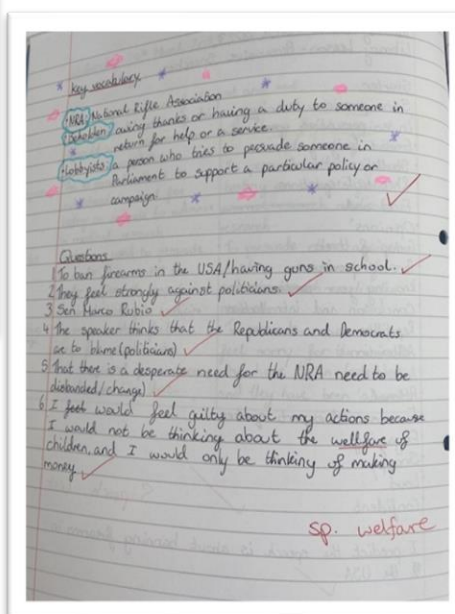 key vocabulary
•NRA: National Rifle Association
•Beholden owing thanks or having a duty to someone in
return for help or a service.
•Lobbyists a person who tries to persuade someone in
Parliament to support a particular policy or
campaign
Questions
1 To ban firearms in the USA/having guns in school.
2 They feel strongly against politicians
3 Sen Marco Rubio
4 The speaker thinks that the Republicans and Democrats
are to blame (politicians)
5 That there is a desperate need for the NRA need to be
disbanded/change)
6 I feel would feel guilty about my actions because
I would not be thinking about the wellfare of
children, and I would only be thinking of making
money
sp. welfare